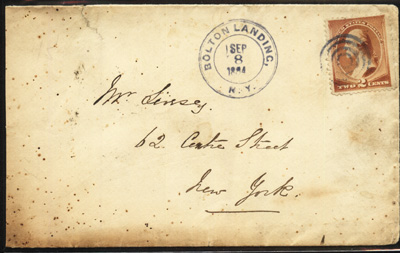 BOLTON LANDING,
SEP
8
1884
N. Y.
TWO 2 CENTS
Mr Linsey
62 Centre Street
New York.